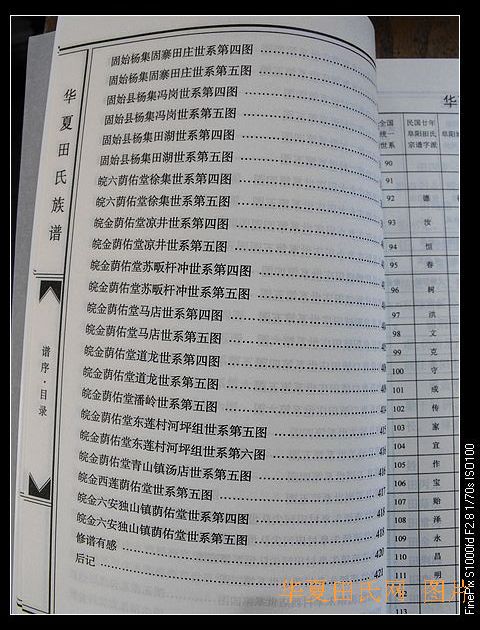 华夏田氏族谱
谱序·目录
固始杨集固寨田庄世系第四图
固始杨集固寨田庄世系第五图
固始县杨集冯岗世系第四图
固始县杨集冯岗世系第五图
固始县杨集田湖世系第四图
固始县杨集田湖世系第五图
皖六荫佑堂徐集世系第四图
皖六荫佑堂徐集世系第五图
皖金荫佑堂凉井世系第四图
皖金荫佑堂凉井世系第五图
皖金荫佑堂苏畈杆冲世系第四图
皖金荫佑堂苏畈杆冲世系第五图
皖金荫佑堂马店世系第四图
皖金荫佑堂马店世系第五图
皖金荫佑堂道龙世系第四图
皖金荫佑堂道龙世系第五图
皖金荫佑堂潘岭世系第五图
皖金荫佑堂东莲村河坪组世系第五图 415
皖金荫佑堂东莲村河坪组世系第六图 416
皖金荫佑堂青山镇汤店世系第五图
皖金西莲荫佑堂世系第五图 417
皖金六安独山镇荫佑堂世系第四图 418
皖金六安独山镇荫佑堂世系第五图 418
修谱有感 420
后记 421
华
全国统一世系 民国廿年阜阳田氏宗谱字派
90
91
92 德
93 汝
94 恒
95 春
96 树
97 洪
98 文
99 克
100 守
101 成
102 传
103 家
104 宜
105 作
106 宝
107 贻
108 泽
109 永
110 昌
111 明
113
华夏田氏网 图片
FinePix S1000fd F2.8 1/70s ISO100